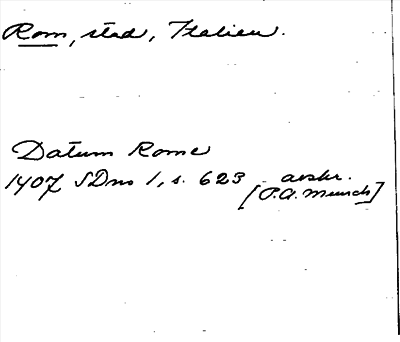 Rom, stad, Italien.
Datum Rome
1407 SDns 1, s. 623 avskr.
[P.A. Munch]